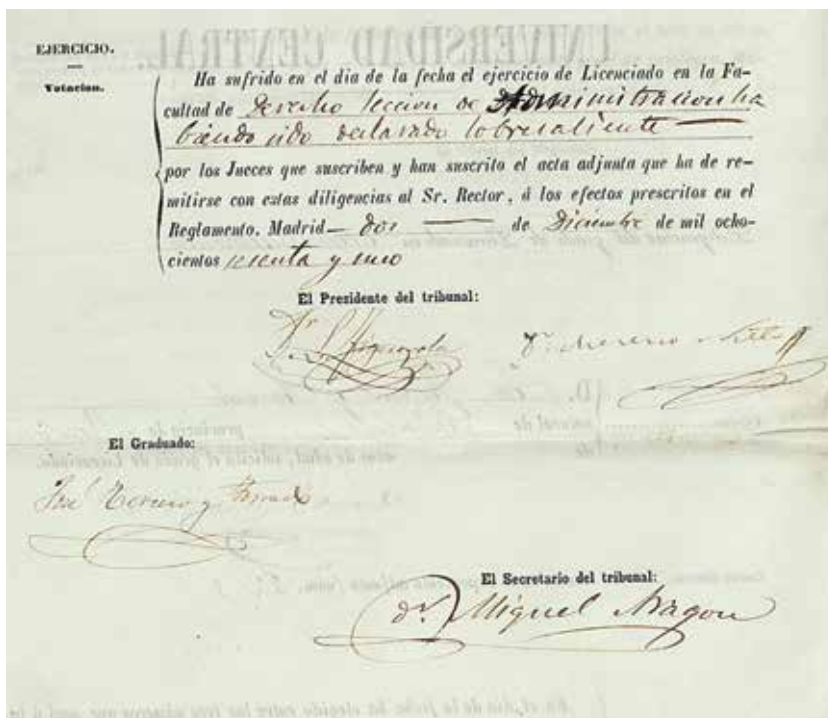 EJERCICIO.
Votacion.
Ha sufrido en el dia de la fecha el ejercicio de Licenciado en la Fa-
cultad de Derecho seccion de Administracion ha
biendo sido declarado sobresaliente
por los Jueces que suscriben y han suscrito el acta adjunta que ha de re-
mitirse con estas diligencias al Sr. Rector, á los efectos prescritos en el
Reglamento. Madrid dos de Diciembre de mil ocho-
cientos sesenta y uno
El Presidente del tribunal:
Dr. Moreno Nieto
El Graduado:
José y
El Secretario del tribunal:
Dr. Miguel Aragon
UNIVERSIDAD CENTRAL.